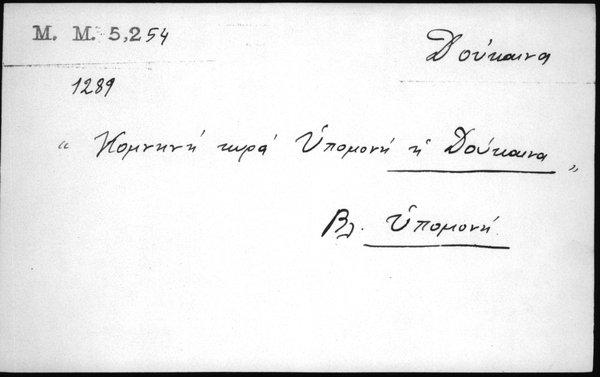 M. M. 5,254
Δούκαινα
1289
“ Κομνηνή κυρά Ὑπομονή ἡ Δούκαινα „
Βλ. Ὑπομονή.